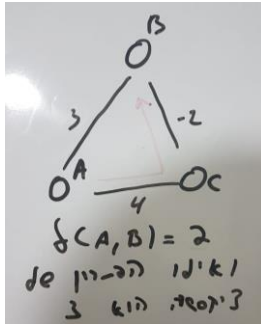 B
3
-2
A
C
4
δ(A,B) = 2
ואילו הפ-רון של
דיקסטרה הוא 3